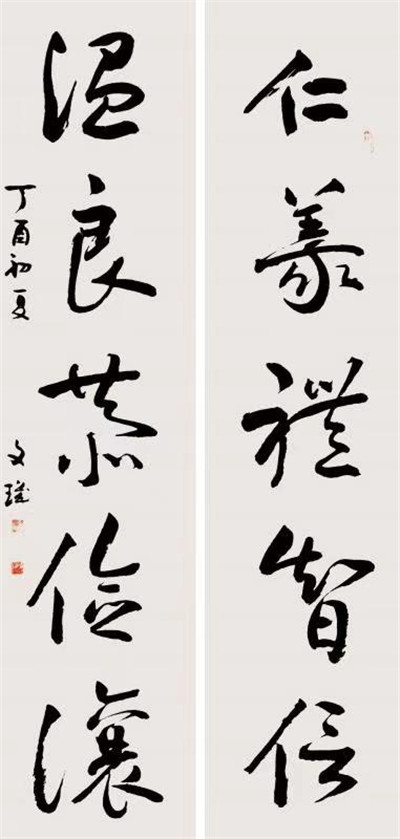 仁義禮智信
温良恭儉讓
丁酉初夏
文